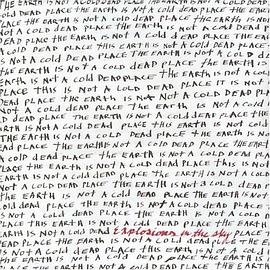 THE EARTH IS NOT A COLD DEAD PLACE THE EARTH IS NOT A COLD DEAD
PLACE THE EARTH IS NOT A COLD DEAD PLACE THE EARTH IS
NOT A COLD DEAD PLACE THE EARTH IS NOT A COLD DEAD P
A COLD DEAD PLACE THIS EARTH IS NOT A COLD DEAD PLACE
DEAD PLACE THE EARTH IS NOT A COLD DEAD PLACE THE EARTH
EARTH IS NOT A COLD DEAD PLACE THE EARTH IS NOT A COL
THIS IS NOT A COLD DEAD PLACE IT IS NOT
DEAD PLACE THE EARTH IS NOT A COLD DEAD PL
NOT A COLD DEAD PLACE THE EARTH IS NOT A COLD
LD DEAD PLACE THE EARTH IS NOT A COLD DEAD PLACE THE
EARTH IS NOT A COLD DEAD PLACE THIS EARTH IS NOT A
THE EARTH IS NOT A COLD DEAD PLACE THE EARTH IS NO
DEAD PLACE THE EARTH IS NOT A COLD DEAD PLACE THE EART
A COLD DEAD PLACE THE EARTH IS NOT A COLD DEAD PLA
NOT A COLD DEAD PLACE THIS IS NOT A COLD DEAD
IS NOT A COLD DEAD PLACE THE EARTH IS NOT A COLD DEAD
DEAD PLACE THE EARTH IS NOT A COLD DEAD PLACE THE EA
IS NOT A COLD DEAD PLACE THE EARTH IS NOT A COLD DE
PLACE THE EARTH IS NOT A COLD DEAD PLACE THE EARTH IS NO
NOT A COLD DEAD PLACE THE EARTH IS NOT A COLD DEAD P
PLACE THIS EARTH IS NOT A COLD DEAD PLACE THE EARTH
EARTH IS NOT A COLD DEAD explosions in the sky PLACE TH
DEAD PLACE THE EARTH IS NOT A COLD DEAD PLACE THE EA
IS NOT A COLD DEAD PLACE THE EARTH IS NOT A COLD DEAD